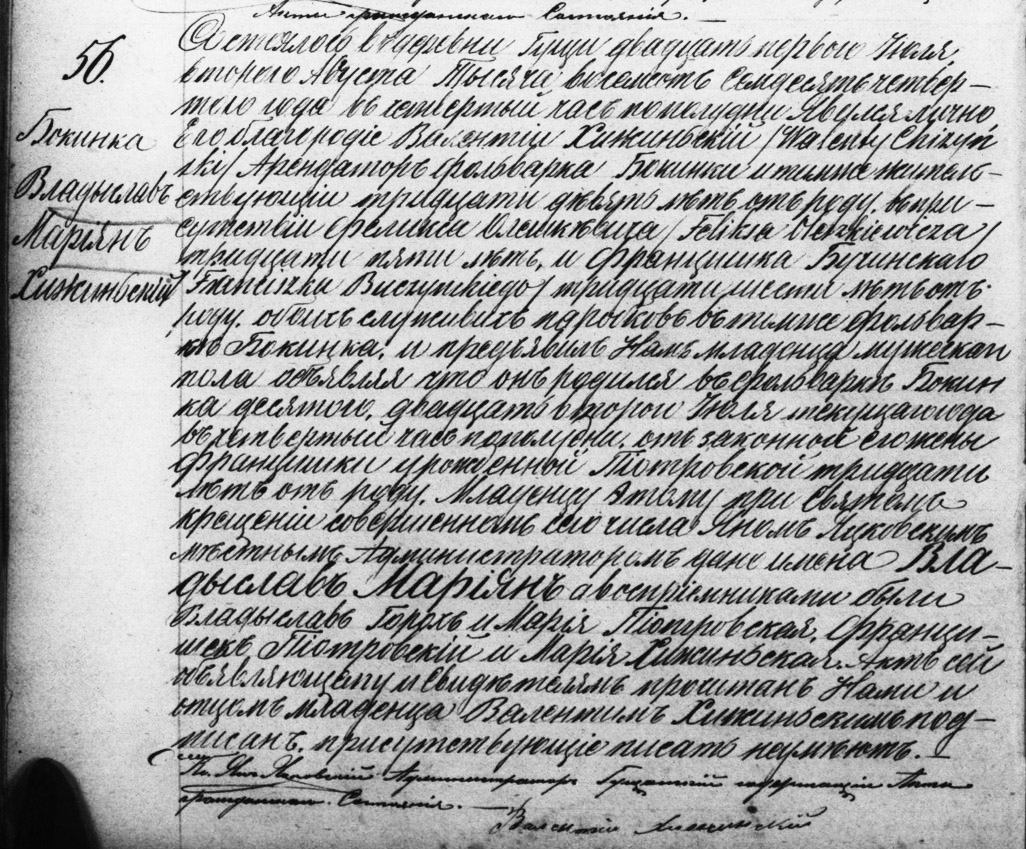 Акты гражданскаго Состоянія. —
56.
Бокинка
Владыславъ
Маріянъ
Хижинскій
Состоялось въ деревни Гуще двадцать перваго Іюля,
втораго Августа Тысяча восемьсотъ семдесятъ четвер–
таго года въ четвертый часъ пополудни. Явился лично
Его благородіе Валентій Хижиньскій /Walenty Chizyń
ski/ Арендаторъ фольварка Бокинки и тамже житель–
ствующій тридцати девять лѣтъ отъ роду. въ при–
сутствіи Феликса Олешкѣвица /Felixa Oleszkiewicza/
тридцати пяти лѣтъ, и Францишка Бучинскаго
/Franciszka Buczyńskiego/ тридцати шести лѣтъ отъ
роду. обоихъ служивыхъ въ тимже фольвар–
кѣ Бокинка. и предъявилъ Намъ младенца мужескаго
пола объявляя что онъ родился въ фольваркѣ Бокин
ка десятого, двадцать второго Іюля текущаго года
въ четвертый часъ пополудни. отъ законной его жены
Францишки урожденной Піотровской тридцати
лѣтъ отъ роду. Младенцу этому при Святомъ
крещеніи совершенномъ сего числа Яномъ
мѣстнымъ Администраторомъ дано имена Вла–
дыславъ Маріянъ а воспріемниками были
Владыславъ Горохъ и Марія Піотровская. Франци–
шекъ Піотровскій и Марія Хижиньская. Актъ сей
объявляющему и свидѣтелямъ прочитанъ Нами и
отцомъ младенца Валентимъ Хижиньскимъ под–
писанъ. присутствующіе писать неумѣютъ. —
Кс. Янъ Администраторъ Акты
граждан. Состоянія. —
Валентій Хижинскій